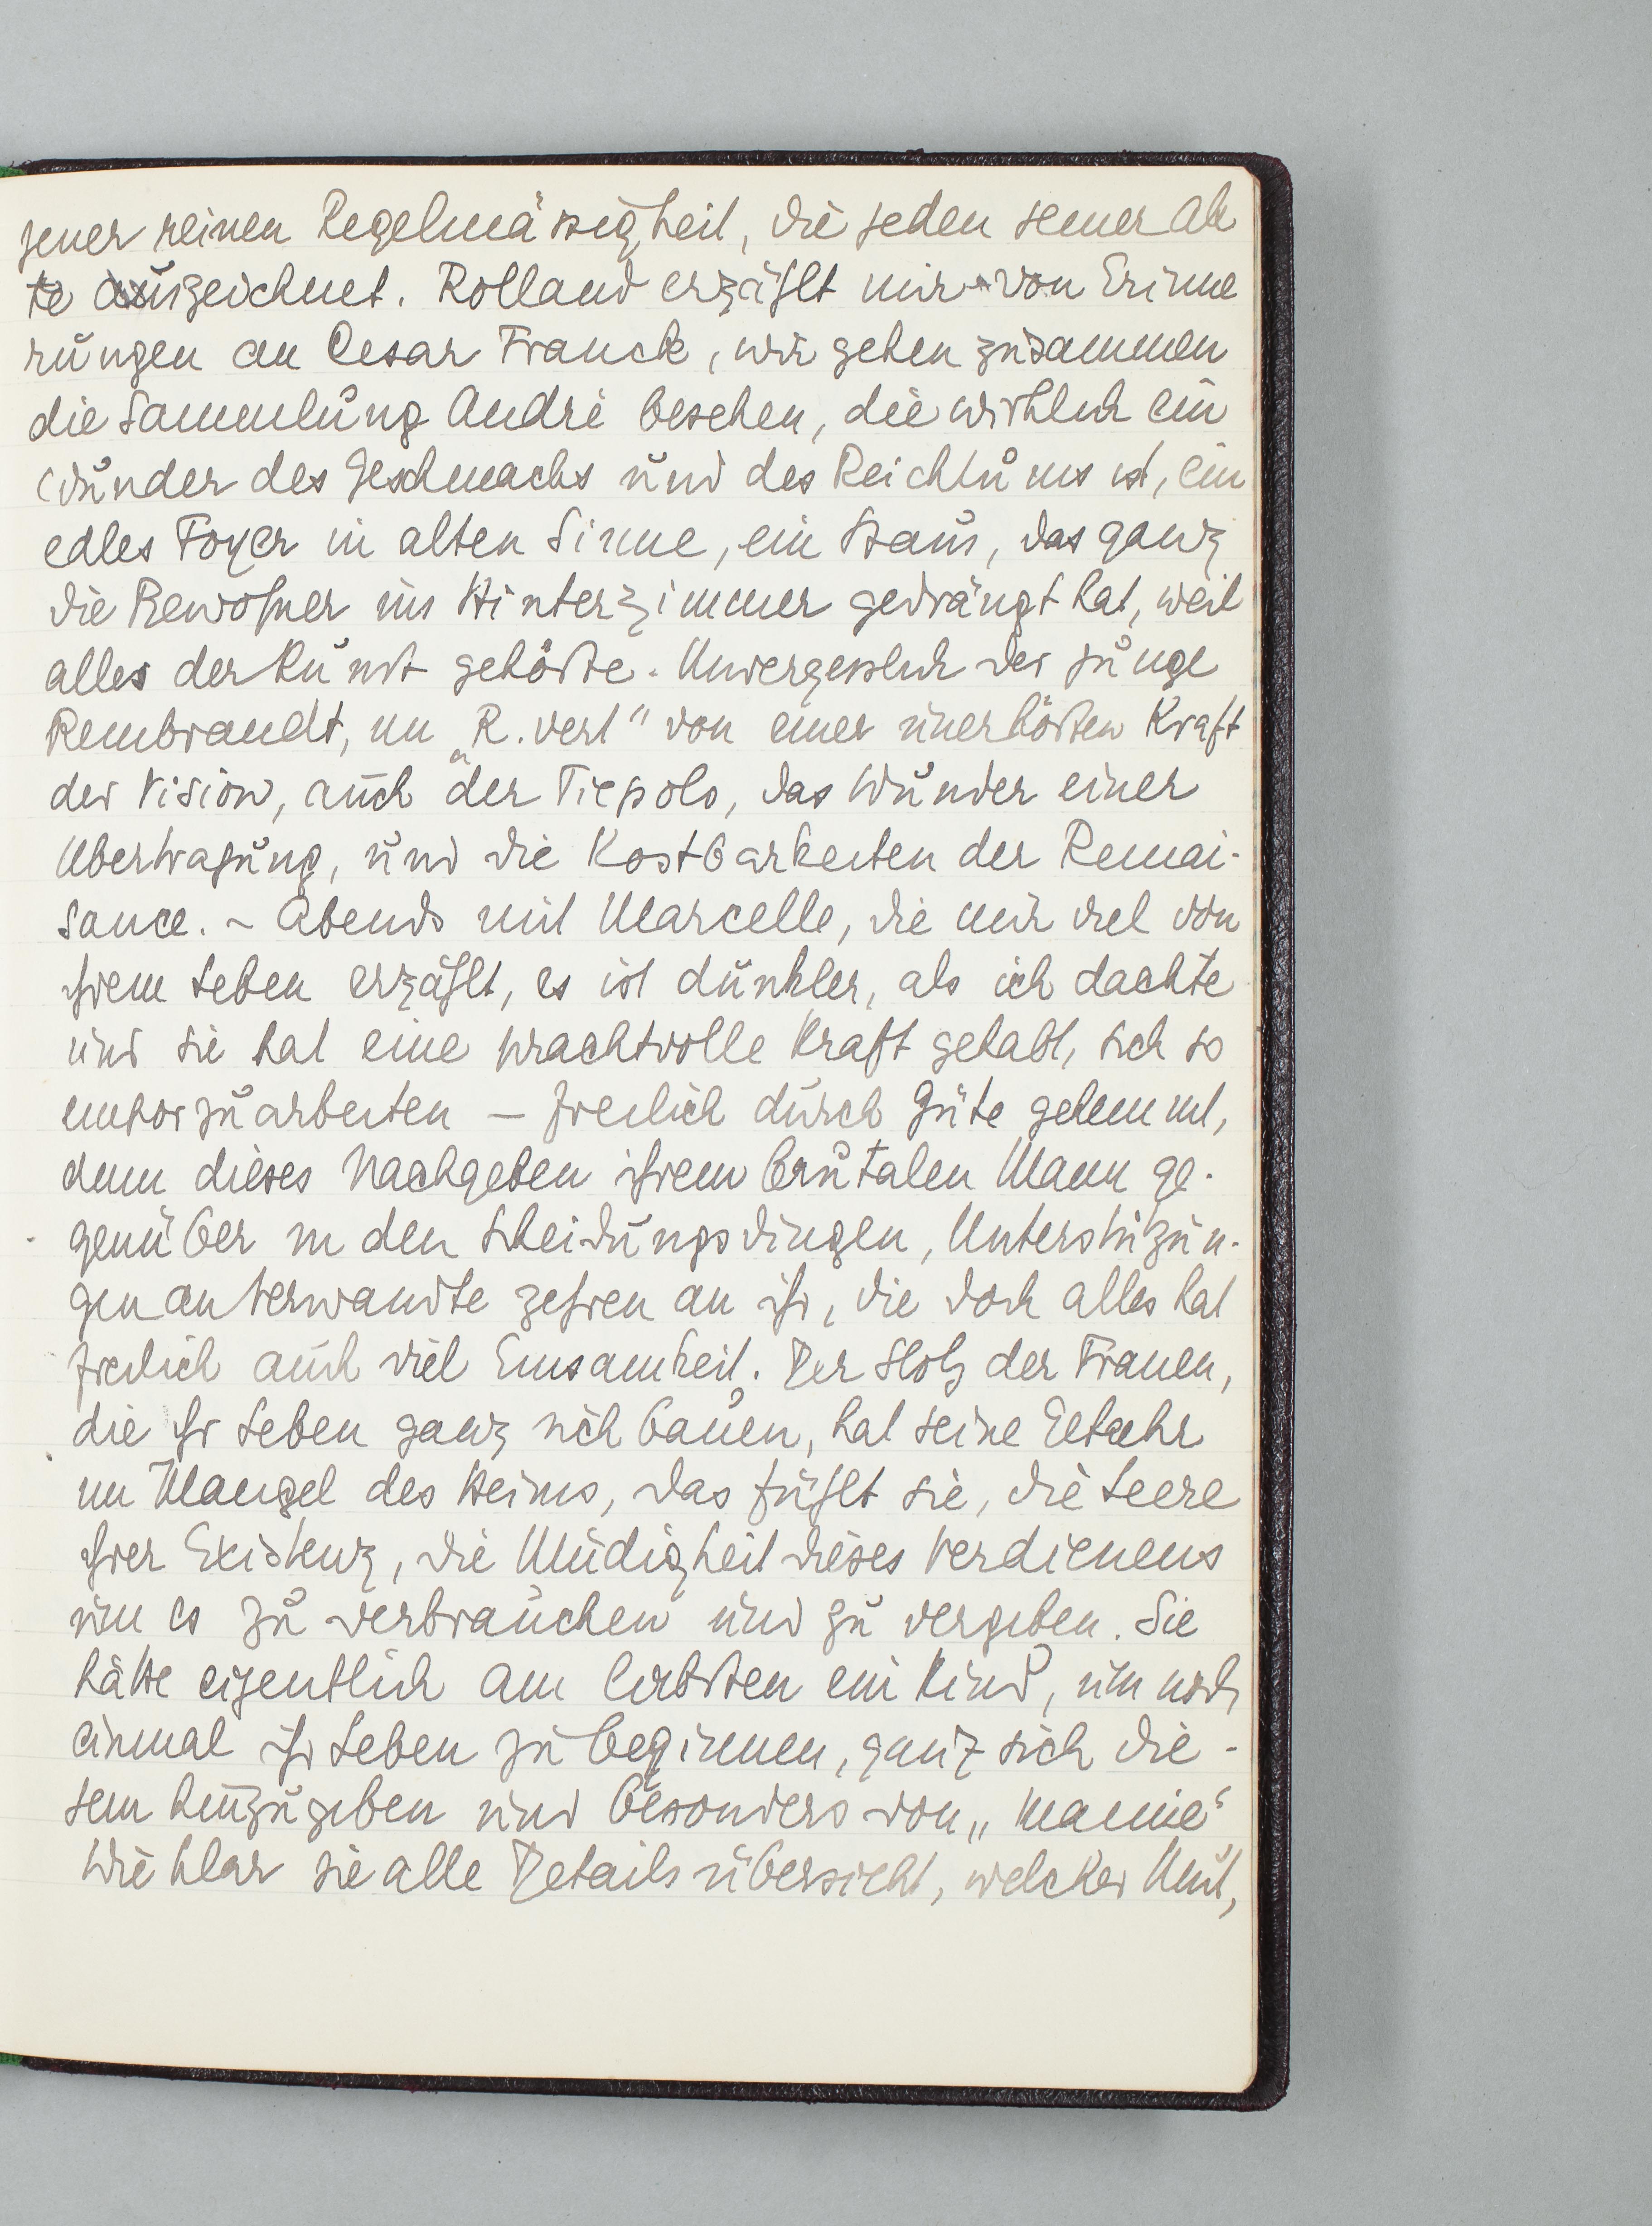 jener reinen Regelmässigkeit, die jeden seiner Ak
te auszeichnet. Rolland erzählt mir von Erinne
rungen an Cesar Franck, wir gehen zusammen
die Sammlung André besehen, die wirklich ein
Wunder des Geschmacks und des Reichtums ist, ein
edles Foyer in alten Sinne, ein Haus, das ganz
die Bewohner ins Hinterzimmer gedrängt hat, weil
alles der Kunst gehörte. Unvergesslich der junge
Rembrandt, im „R. vert" von einer unerhörten Kraft
der Vision, auch der Tiepolo, das Wunder einer
Übertragung, und die Kostbarkeiten der Renai-
sance. – Abends mit Marcelle, die mir viel von
ihrem Leben erzählt, es ist dunkler, als ich dachte
und sie hat eine prachtvolle Kraft gehabt, sich so
emporzuarbeiten – freilich durch Güte gehemmt,
denn dieses Nachgeben ihrem brutalen Mann ge-
genüber in den Scheidungsdingen, Unterstützun-
gen an Verwandte zehren an ihr, die doch alles hat
freilich auch viel Einsamkeit. Der Stolz der Frauen,
die ihr Leben ganz sich bauen, hat seine
im Mangel des Heims, das fühlt sie, die Leere
ihrer Existenz, die Müdigkeit dieses Verdienens
um es zu verbrauchen und zu vergeben. Sie
hätte eigentlich am liebsten ein Kind, um noch
einmal ihr Leben zu beginnen, ganz sich die-
sem hinzugeben und besonders von „
Wie klar sie alle Details übersieht, welcher Mut,